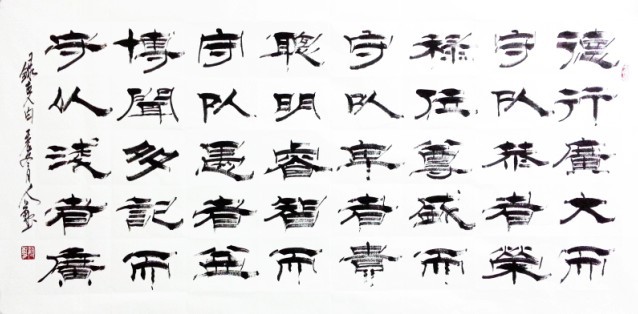 德行廣大而
守以恭者榮
禄位尊盛而
守以卑者貴
聰明睿智而
守以愚者益
博聞多記而
守以浅者廣